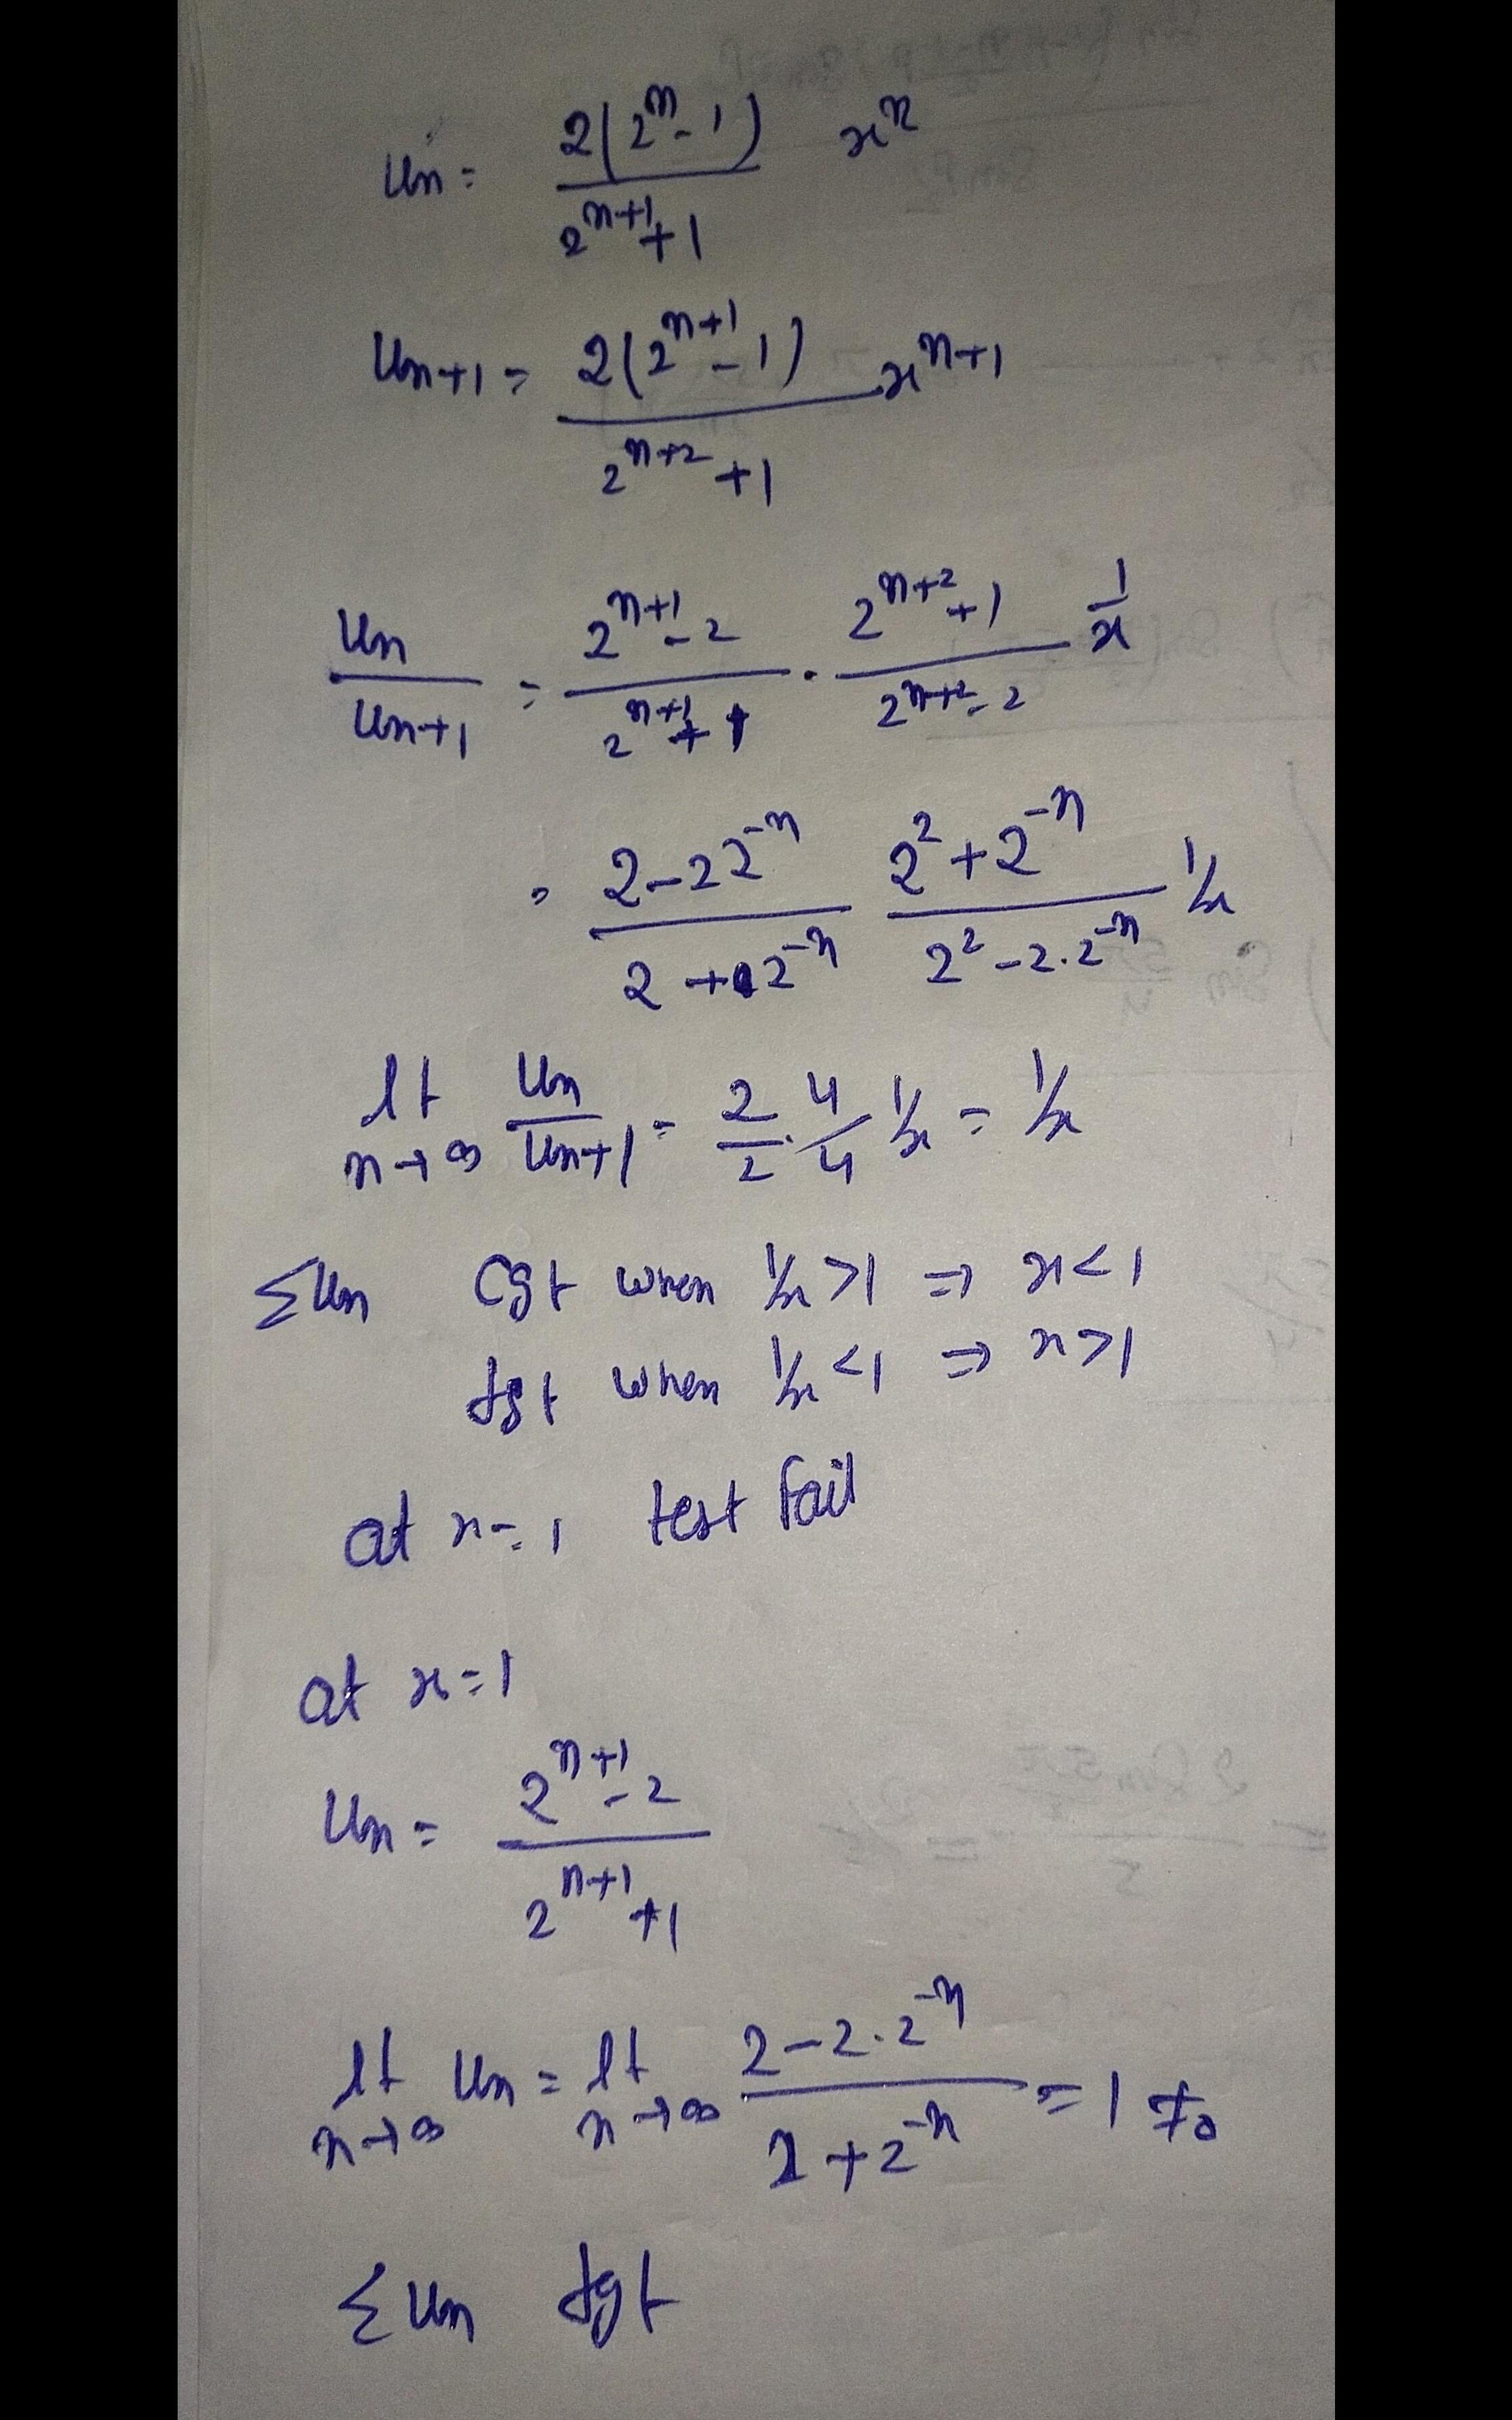 Un = 2(2^n - 1) / 2^(n+1) + 1 x^n
Un+1 = 2(2^(n+1) - 1) / 2^(n+2) + 1 x^(n+1)
Un / Un+1 = 2^(n+1) - 2 / 2^(n+1) + 1 . 2^(n+2) + 1 / 2^(n+2) - 2 1/x
= 2 - 2 2^-n / 2 + 2^-n 2^2 + 2^-n / 2^2 - 2.2^-n 1/x
lt n→∞ Un / Un+1 = 2/2 . 4/4 1/x = 1/x
ΣUn Cgt when 1/x > 1 ⇒ x < 1
dgt when 1/x < 1 ⇒ x > 1
at x = 1 test fail
at x = 1
Un = 2^(n+1) - 2 / 2^(n+1) + 1
lt n→∞ Un = lt n→∞ 2 - 2.2^-n / 2 + 2^-n = 1 ≠ 0
ΣUn dgt